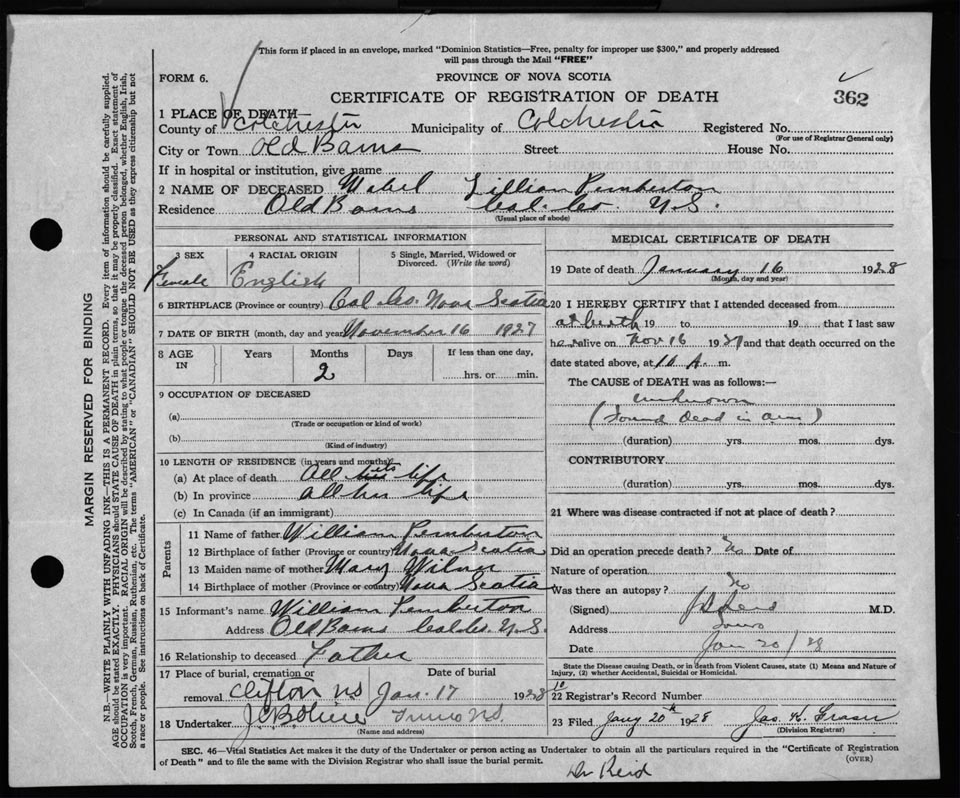 This form if placed in an envelope, marked "Dominion Statistics—Free, penalty for improper use $300," and properly addressed
will pass through the Mail "FREE"
FORM 6.
PROVINCE OF NOVA SCOTIA
CERTIFICATE OF REGISTRATION OF DEATH
362
1 PLACE OF DEATH
County of Colchester Municipality of Colchester Registered No.
(For use of Registrar General only)
City or Town Old Barns Street House No.
If in hospital or institution, give name
2 NAME OF DECEASED Mabel Lillian Pemberton
Residence Old Barns Col. Co. N.S.
(Usual place of abode)
PERSONAL AND STATISTICAL INFORMATION
3 SEX 4 RACIAL ORIGIN 5 Single, Married, Widowed or Divorced. (Write the word)
Female English
6 BIRTHPLACE (Province or country) Col. Co. Nova Scotia
7 DATE OF BIRTH (month, day and year) November 16 1927
8 AGE IN Years Months Days If less than one day,
2 hrs. or min.
9 OCCUPATION OF DECEASED
(a)
(Trade or occupation or kind of work)
(b)
(Kind of industry)
10 LENGTH OF RESIDENCE (in years and months)
(a) At place of death All its life
(b) In province all her life
(c) In Canada (if an immigrant)
Parents
11 Name of father William Pemberton
12 Birthplace of father (Province or country) Nova Scotia
13 Maiden name of mother Mary
14 Birthplace of mother (Province or country) Nova Scotia
15 Informant's name William Pemberton
Address Old Barns Col. Co. N.S.
16 Relationship to deceased Father
17 Place of burial, cremation or Date of burial
removal Clifton NS Jan. 17 1928
18 Undertaker Truro N.S.
(Name and address)
MEDICAL CERTIFICATE OF DEATH
19 Date of death January 16 1928
(Month, day and year)
20 I HEREBY CERTIFY that I attended deceased from
at birth 19 to 19 that I last saw
her alive on Nov 16 1927 and that death occurred on the
date stated above, at A. m.
The CAUSE of DEATH was as follows:—
unknown
(Found dead in
(duration) yrs. mos. dys.
CONTRIBUTORY
(duration) yrs. mos. dys.
21 Where was disease contracted if not at place of death?
Did an operation precede death? No Date of
Nature of operation
Was there an autopsy? No
(Signed) M.D.
Address Truro
Date Jan 20/28
State the Disease causing Death, or in death from Violent Causes, state (1) Means and Nature of
Injury, (2) whether Accidental, Suicidal or Homicidal.
22 Registrar's Record Number 10
23 Filed Jany 20th 1928 Jas. K. Fraser
(Division Registrar)
SEC. 46—Vital Statistics Act makes it the duty of the Undertaker or person acting as Undertaker to obtain all the particulars required in the "Certificate of Registration
of Death" and to file the same with the Division Registrar who shall issue the burial permit.
(OVER)
Dr Reid
MARGIN RESERVED FOR BINDING
N.B.—WRITE PLAINLY WITH UNFADING INK—THIS IS A PERMANENT RECORD. Every item of information should be carefully supplied.
AGE should be stated EXACTLY. PHYSICIANS should STATE CAUSE OF DEATH in plain terms, so that it may be properly classified. Exact statement of
OCCUPATION is very important. RACIAL ORIGIN will be described by stating to what people or tongue the deceased person belonged, whether English, Irish,
Scotch, French, German, Russian, Ruthenian, etc. The terms "AMERICAN" or "CANADIAN" SHOULD NOT BE USED as they express citizenship but not
a race or people. See instructions on back of Certificate.